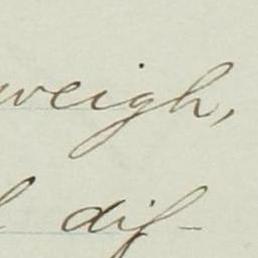 weigh,
dif-